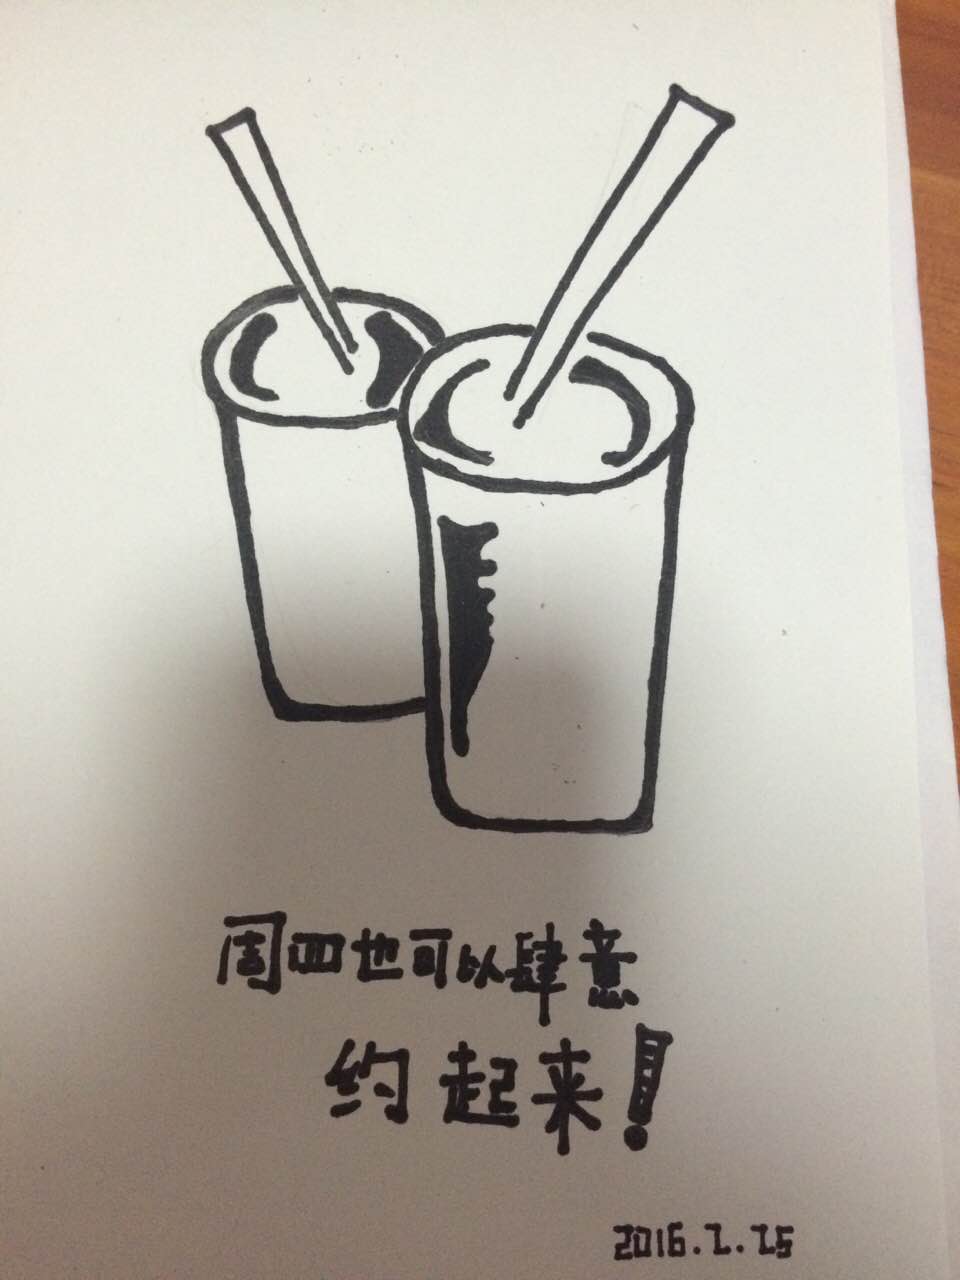 周四也可以肆意
约起来！
2016.2.25